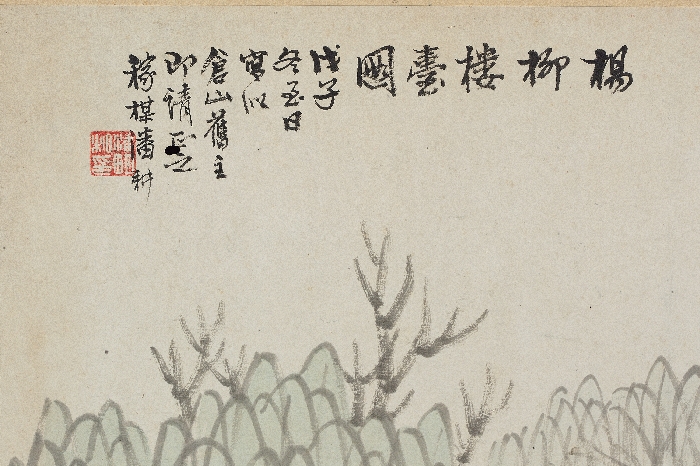 楊柳樓臺圖
戊子
冬至日
寫似
倉山舊主
即請正之
稼楳潘耕